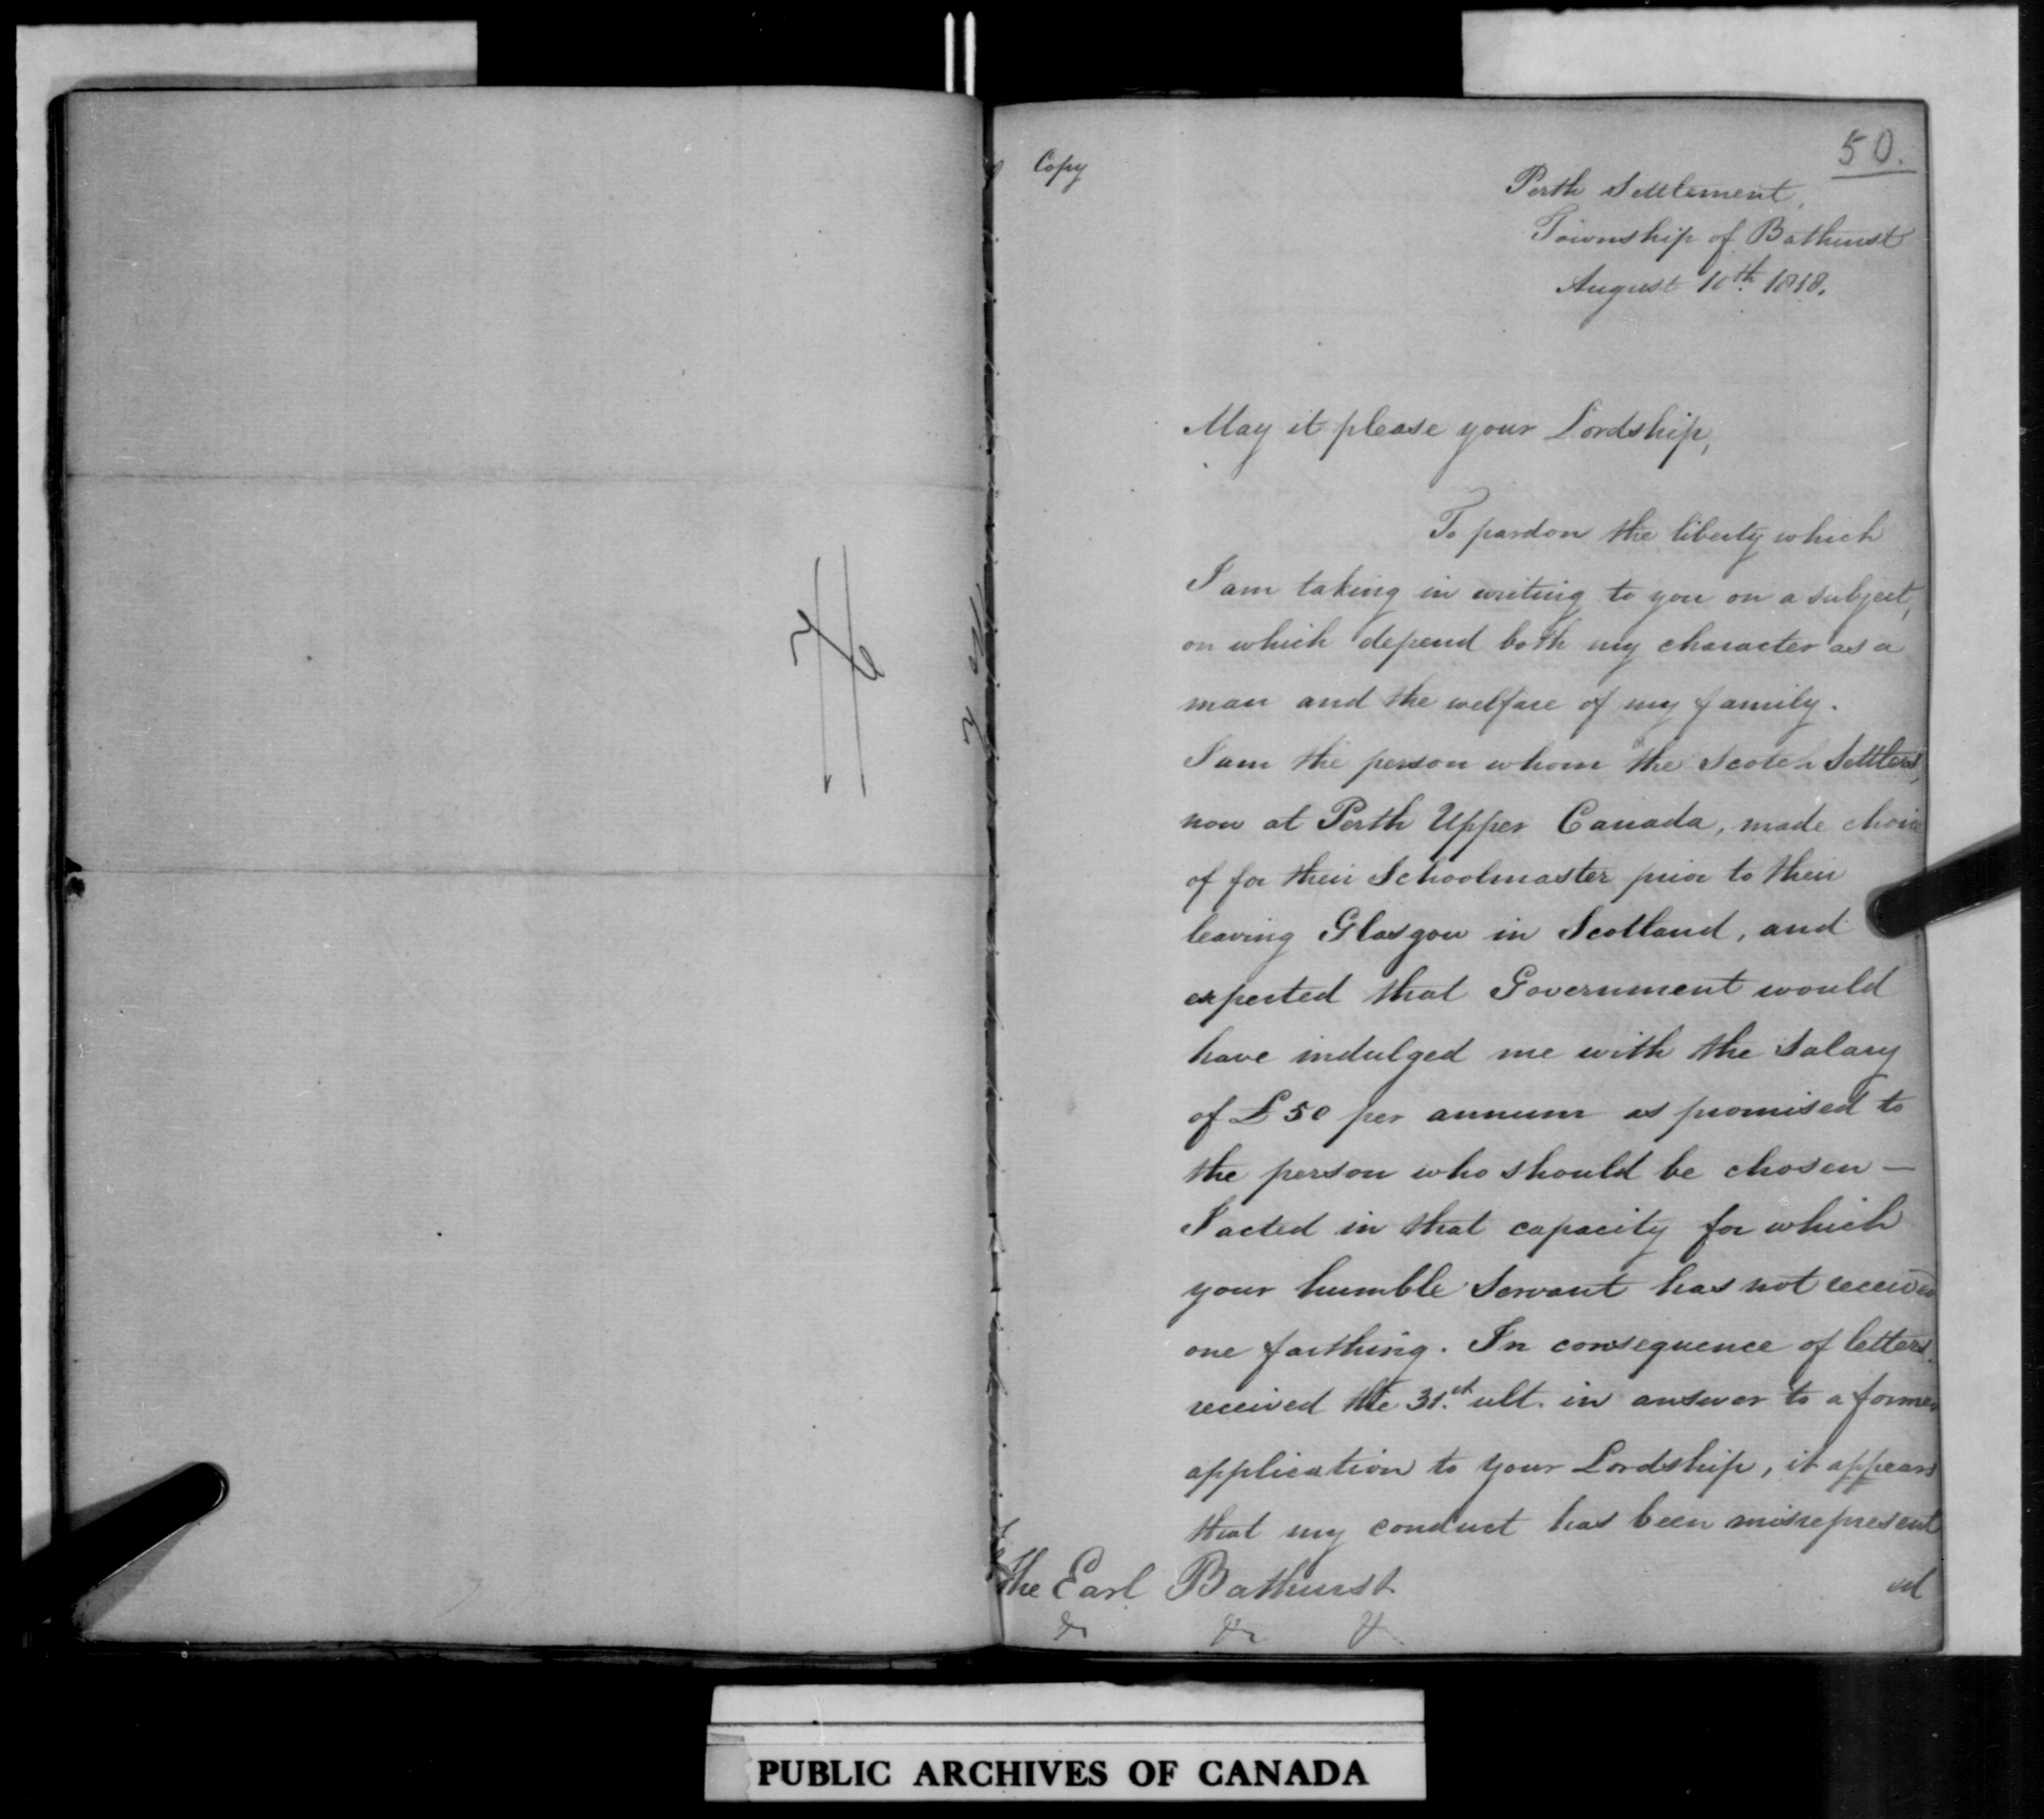 50.
Copy
Perth Settlement,
Township of Bathurst
August 10th. 1818.
May it please your Lordship,
To pardon the liberty which
I am taking in writing to you on a subject,
on which depend both my character as a
man and the welfare of my family.
I am the person whom the Scotch Settlers,
now at Perth Upper Canada, made choice
of for their Schoolmaster prior to their
leaving Glasgow in Scotland, and
expected that Government would
have indulged me with the Salary
of £50 per annum as promised to
the person who should be chosen —
I acted in that capacity for which
your humble Servant has not received
one farthing. In consequence of letters
received the 31.st ult. in answer to a former
application to your Lordship, it appears
that my conduct has been misrepresent
ed
The Earl Bathurst
&c &c &c
PUBLIC ARCHIVES OF CANADA